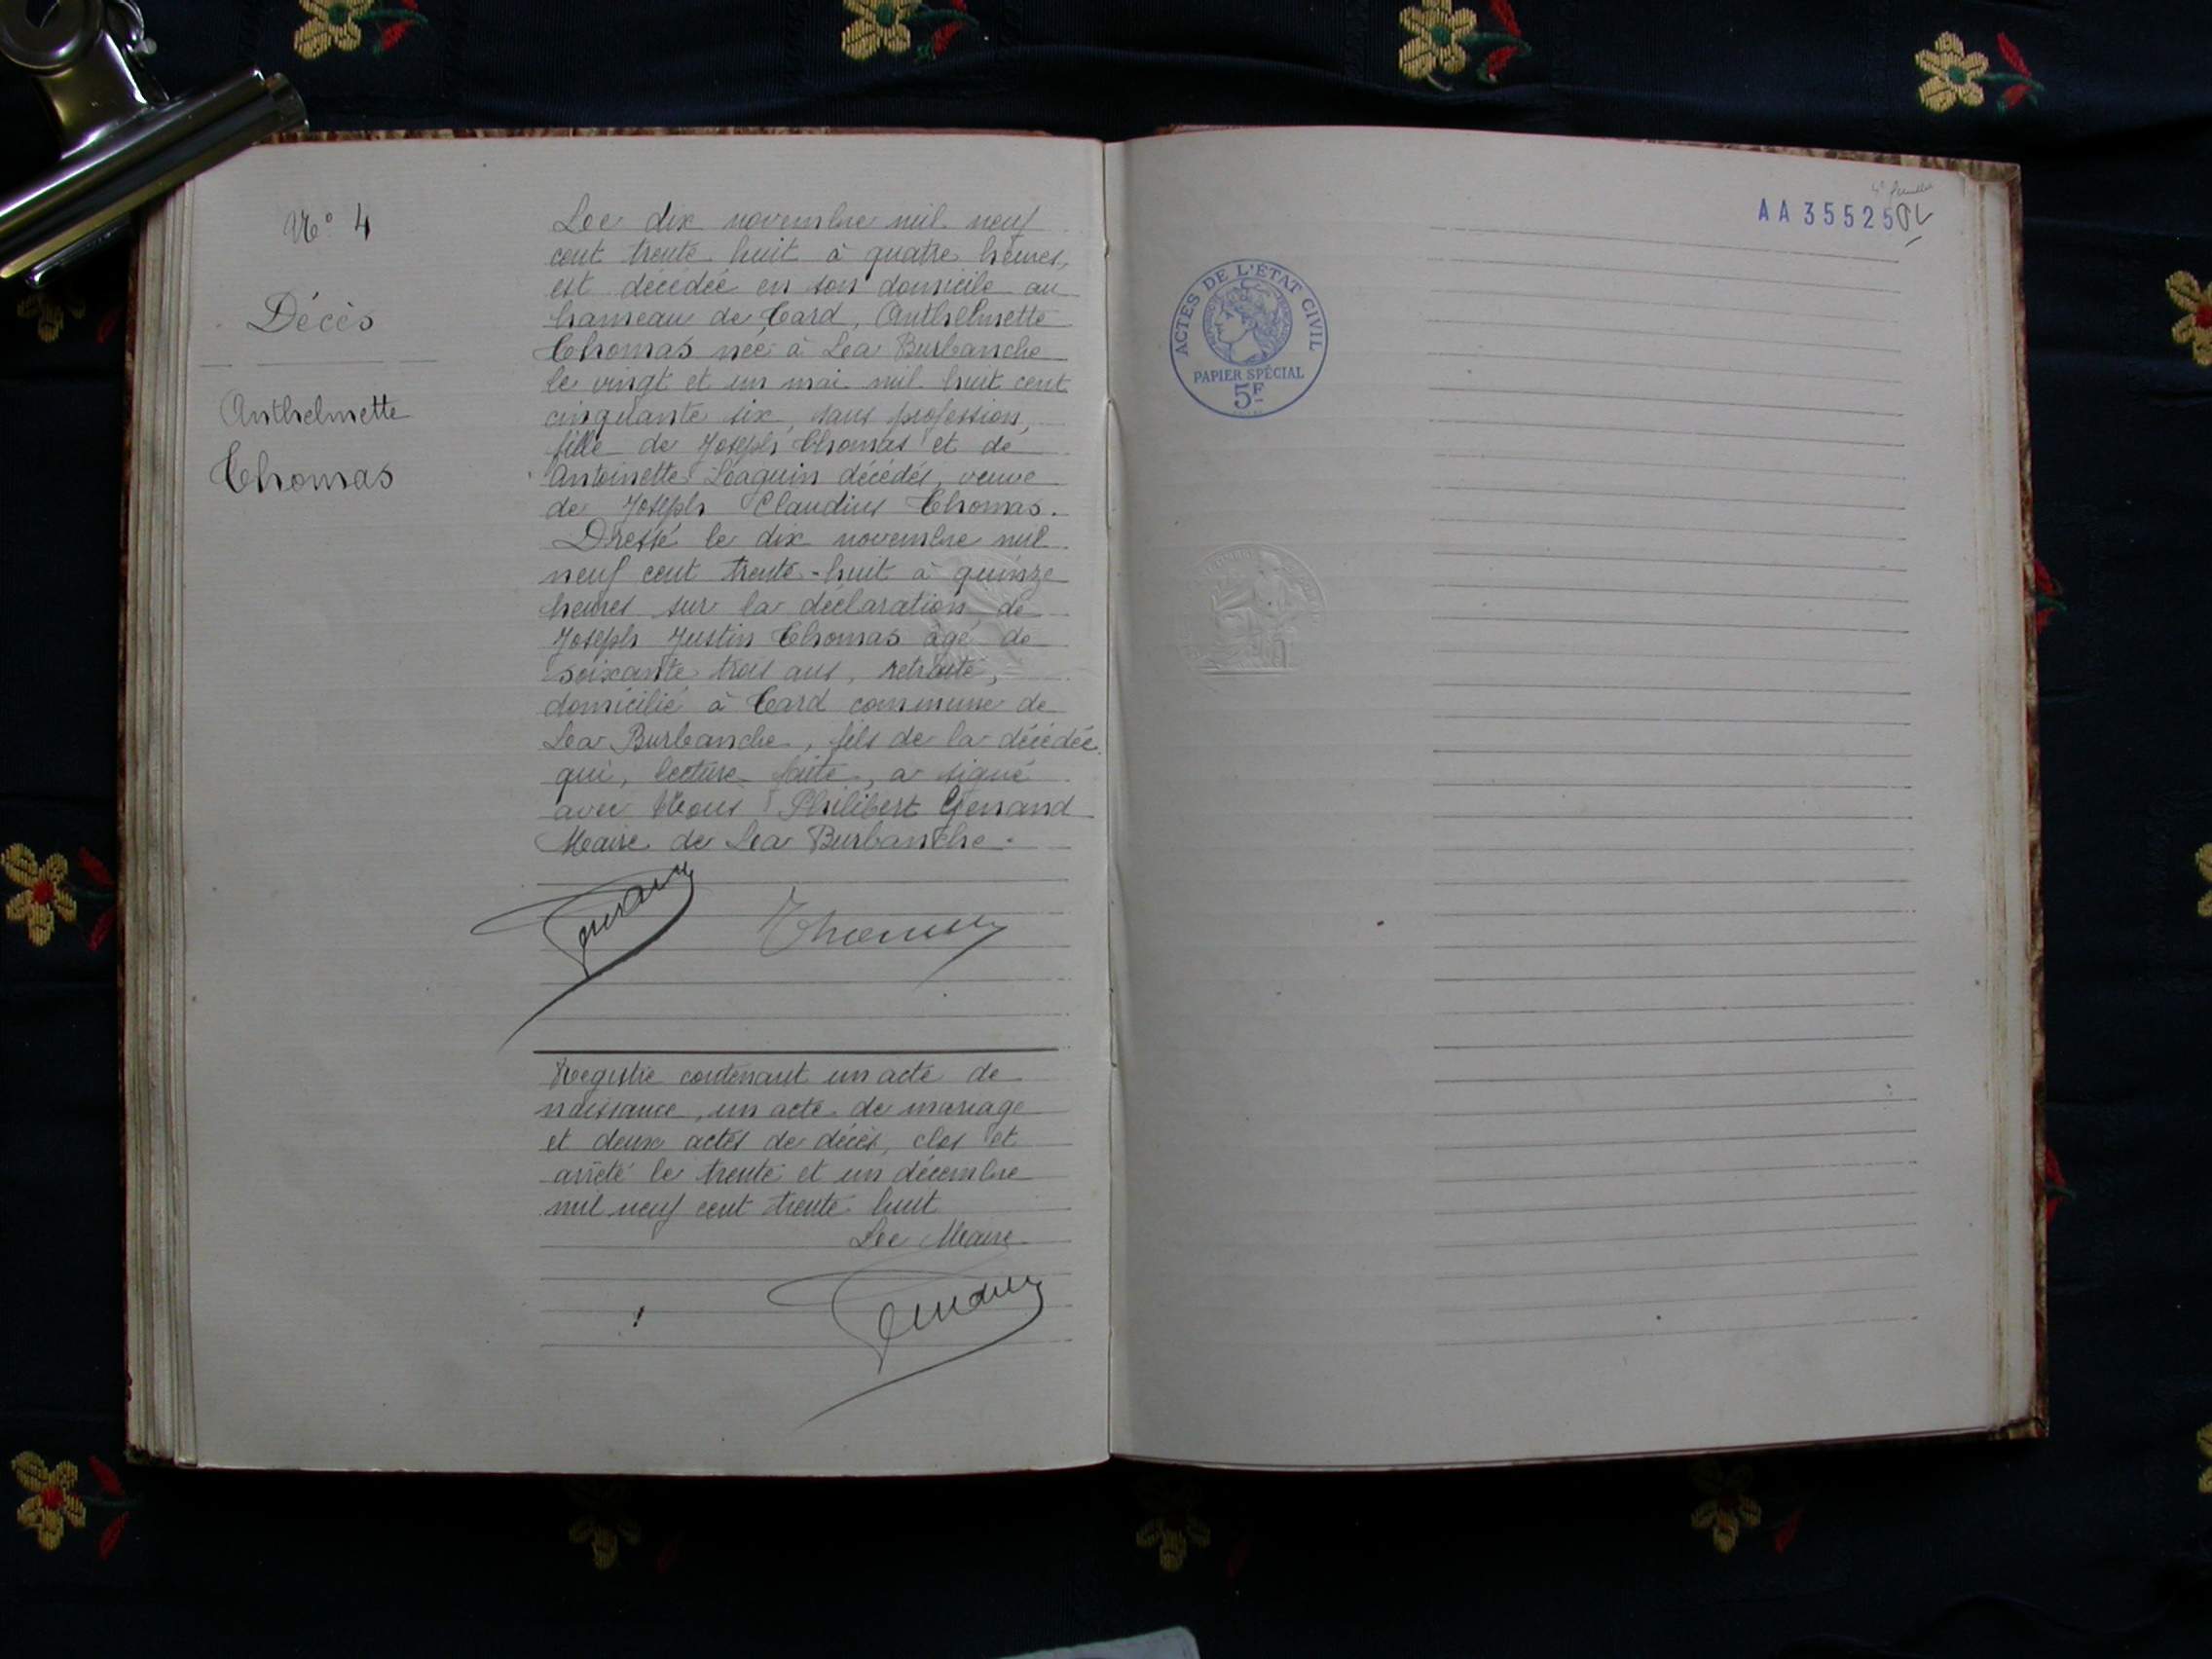 N° 4
Décès
Anthelmette
Thomas
Le dix novembre mil neuf
cent trente huit à quatre heures,
est décédée en son domicile au
hameau de Tard, Anthelmette
Thomas née à La Burbanche
le vingt et un mai mil huit cent
cinquante six, sans profession,
fille de Joseph Thomas et de
Antoinette décédés, veuve
de Joseph Claudius Thomas.
Dressé le dix novembre mil
neuf cent trente-huit à quinze
heures sur la déclaration de
Joseph Justin Thomas âgé de
soixante trois ans, retraité,
domicilié à Tard commune de
La Burbanche, fils de la décédée
qui, lecture faite, a signé
avec Nous Philibert Genand
Maire de La Burbanche.
Genand Thomas
Registre contenant un acte de
naissance, un acte de mariage
et deux actes de décès, clos et
arrêté le trente et un décembre
mil neuf cent trente huit
Le Maire
Genand
AA 35525
ACTES DE L'ÉTAT CIVIL
PAPIER SPÉCIAL
5F